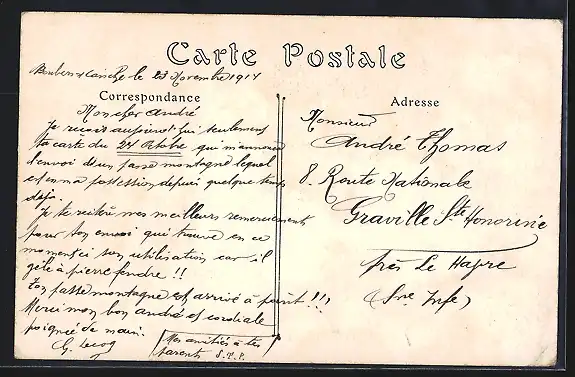 Carte Postale
Boubers s/ Canche le 23 Novembre 1914
Correspondance
Mon cher André
Je reçois aujourd'hui seulement
ta carte du 24 Octobre qui m'annonce
l'envoi d'un passe montagne lequel
est en ma possession depuis quelque temps
déjà.
Je te réitère mes meilleurs remerciements
pour ton envoi qui trouve en ce
moment-ci son utilisation car il
gèle à pierre fendre !!
Ton passe montagne est arrivé à point !!!
Merci mon bon André et cordiale
poignée de main.
G. Lecoq
Mes amitiés à tes
parents S.T.P.
Adresse
Monsieur
André Thomas
8. Route Nationale
Graville Ste Honorine
près Le Havre
(Sne Infe)